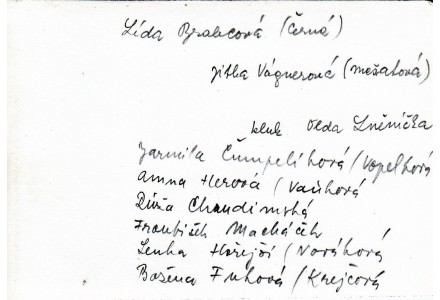 Lída Brabcová (Černá)
Jitka Vágnerová (mešatová)
kluk Olda Sněnička
Jarmila Čumpelíková / Vopelková
Anna Herová / Vaňková
Růža Chaudimská
František Macháček
Lenka Hořejší / Nováková
Božena Fuková / Krejcová